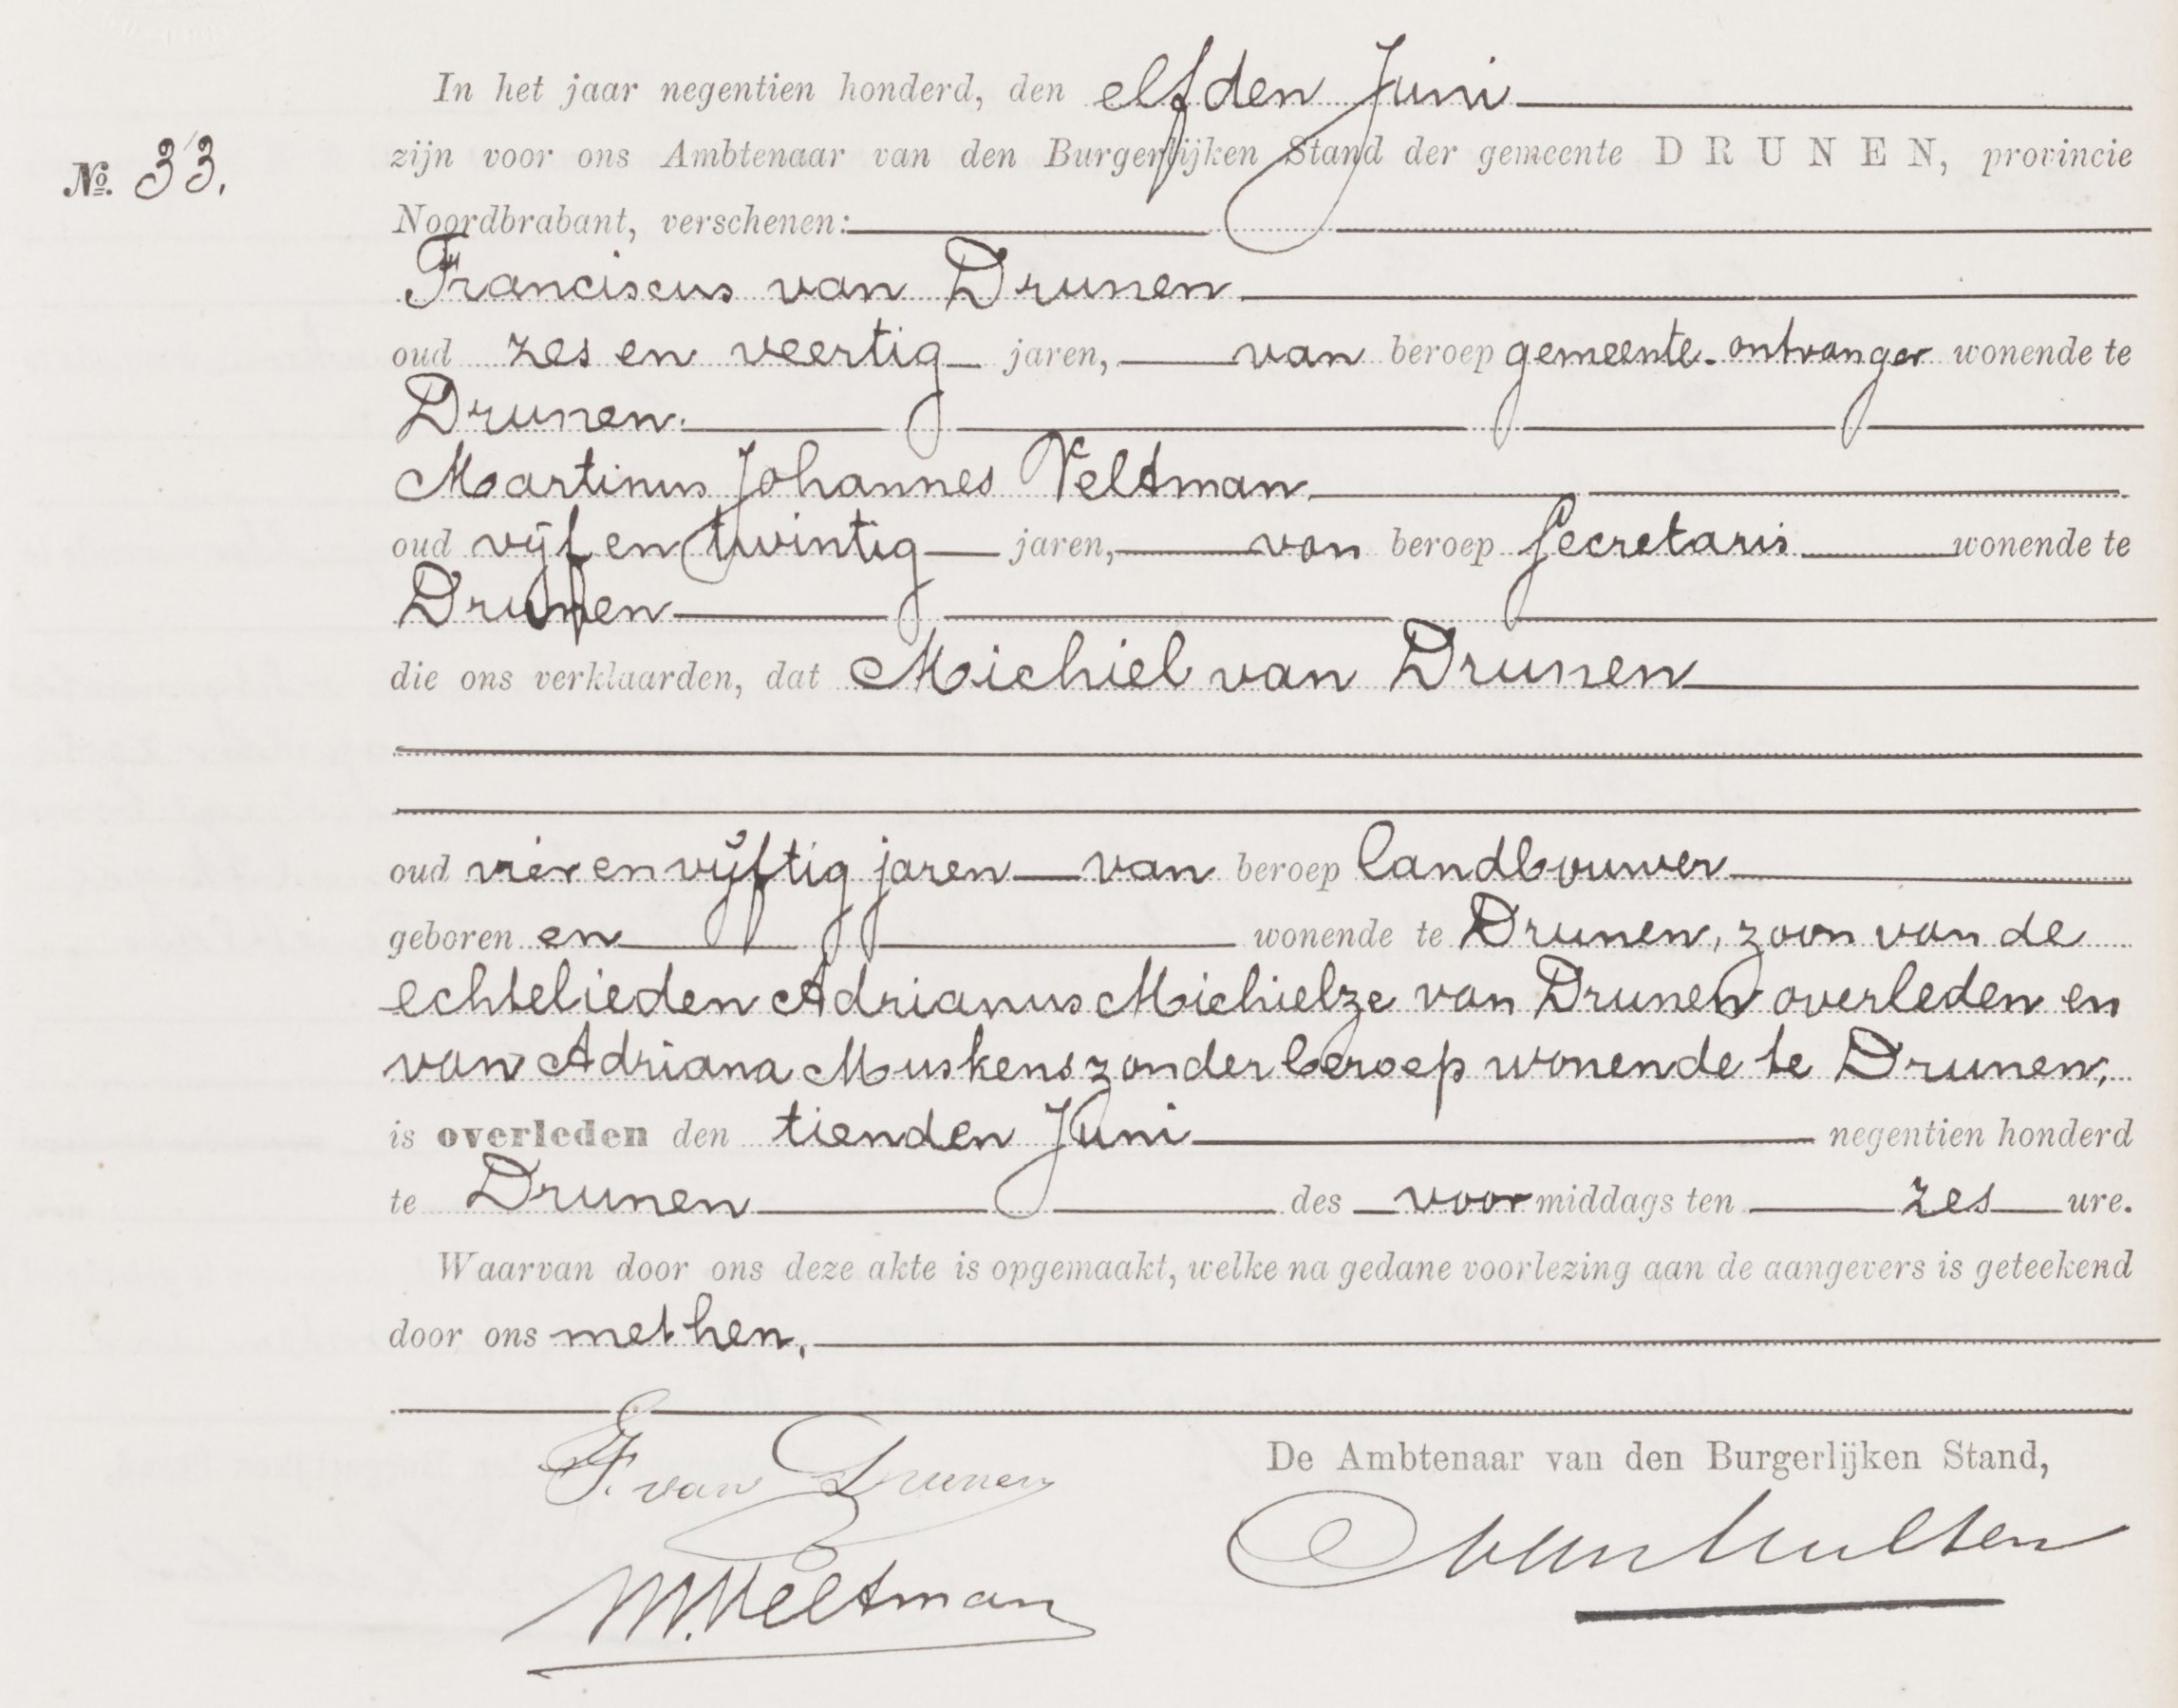 In het jaar negentien honderd, den elfden Juni
zijn voor ons Ambtenaar van den Burgerlijken Stand der gemeente DRUNEN, provincie
No. 33.
Noordbrabant, verschenen:
Franciscus van Drunen
oud zes en veertig jaren, van beroep gemeente-ontvanger wonende te
Drunen.
Martinus Johannes Veltman
oud vijf en twintig jaren, van beroep Secretaris wonende te
Drunen
die ons verklaarden, dat Michiel van Drunen
oud vier en vijftig jaren van beroep landbouwer
geboren en wonende te Drunen, zoon van de
echtelieden Adrianus Michielze van Drunen overleden en
van Adriana Muskens zonder beroep wonende te Drunen,
is overleden den tienden Juni negentien honderd
te Drunen des voormiddags ten zes ure.
Waarvan door ons deze akte is opgemaakt, welke na gedane voorlezing aan de aangevers is geteekend
door ons met hen.
De Ambtenaar van den Burgerlijken Stand,
F. van Drunen
van Hulten
M. Veltman